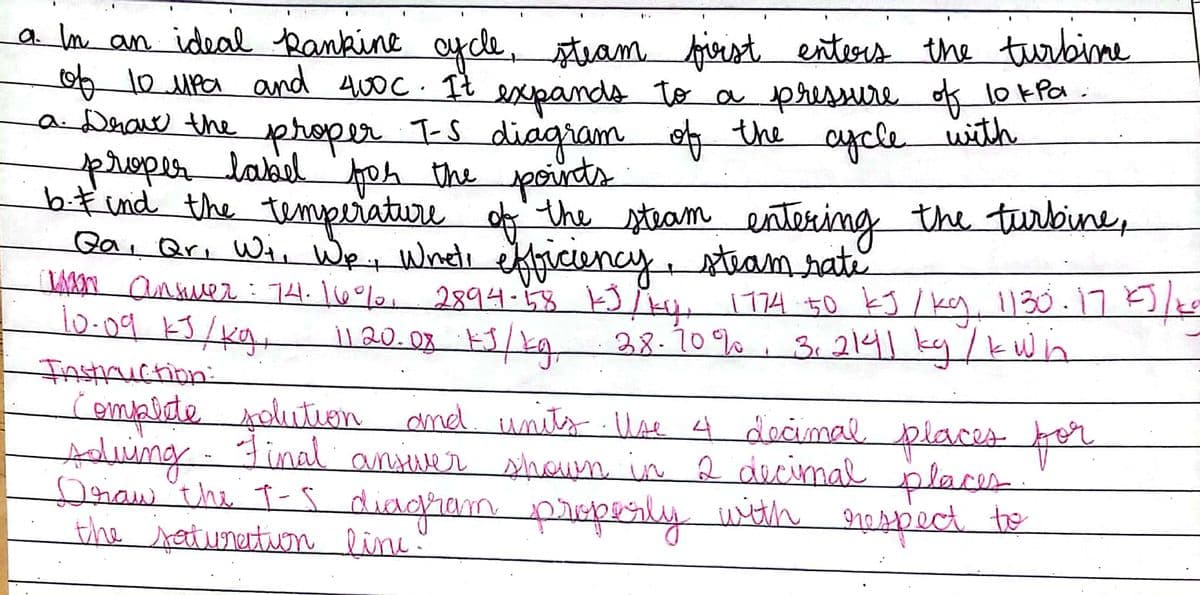 a. In an ideal Rankine cycle, steam first enters the turbine
of 10 MPa and 400C. It expands to a pressure of 10 kPa.
a. Draw the proper T-S diagram of the cycle with
proper label for the points
b. Find the temperature of the steam entering the turbine,
Qa, Qr, Wt, Wp, Wnet, efficiency, steam rate
Answer: 74.16%, 2894.58 kJ/kg, 1774.50 kJ/kg, 1130.17 kJ/kg
10.09 kJ/kg, 1120.08 kJ/kg, 38.70%, 3.2141 kg/kwh
Instruction:
Complete solution and units. Use 4 decimal places for
solving. Final answer shown in 2 decimal places.
Draw the T-S diagram properly with respect to
the saturation line.